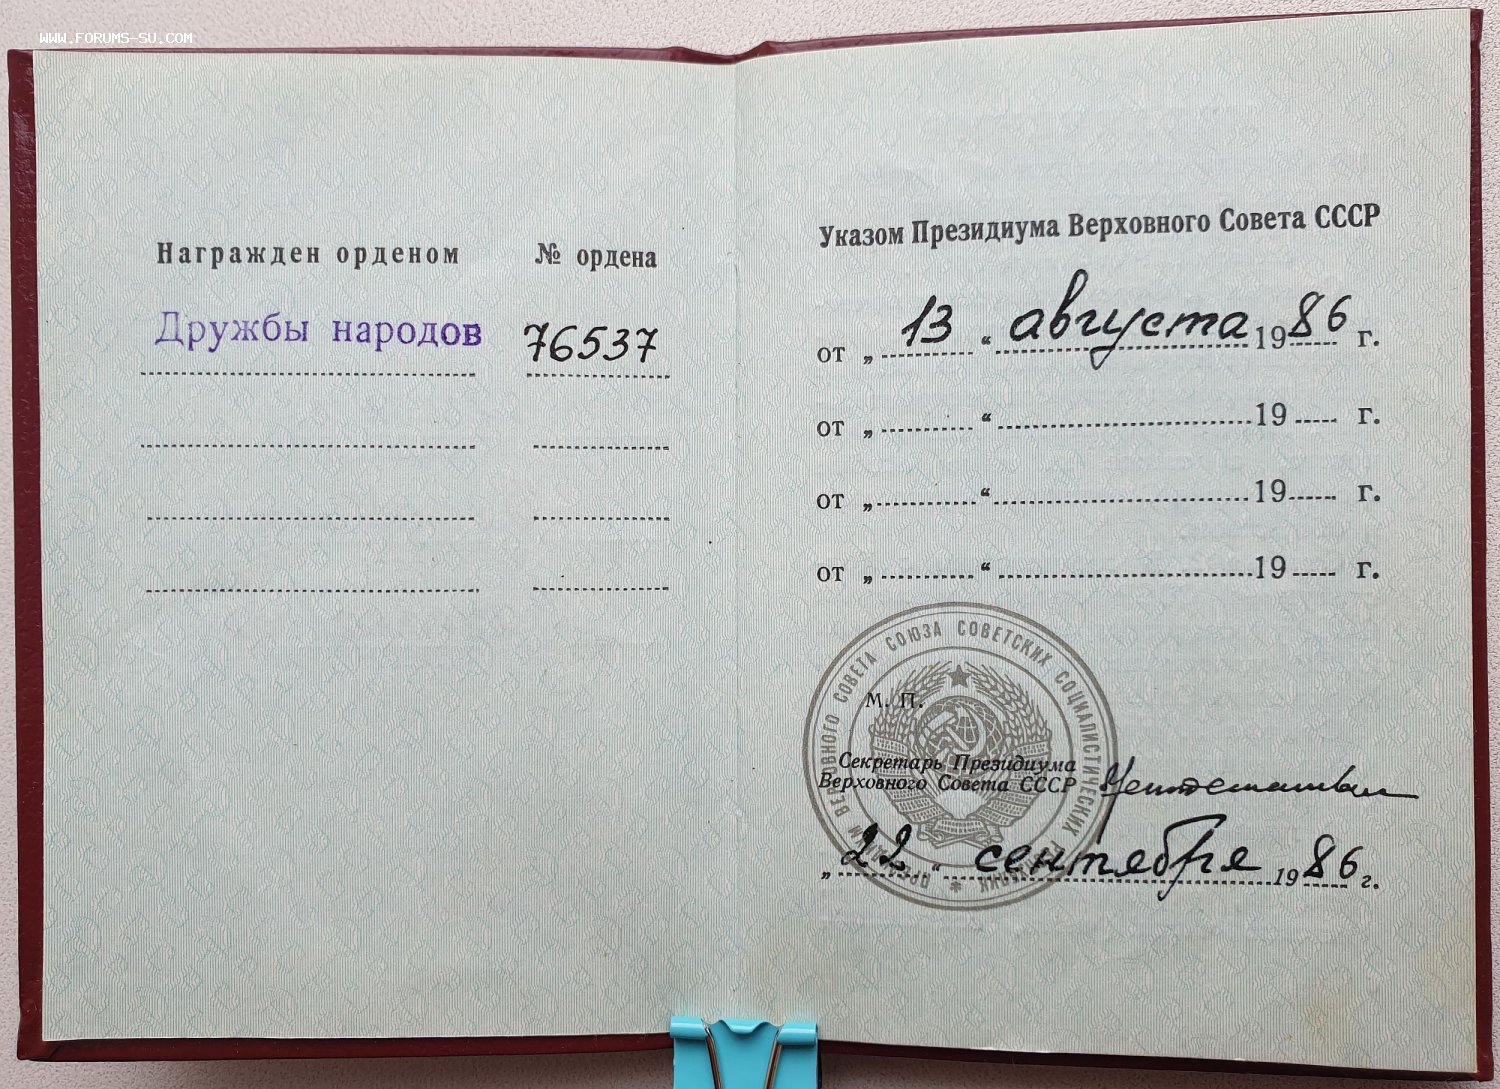 WWW.FORUMS-SU.COM
Награжден орденом
№ ордена
Дружбы народов
76537
Указом Президиума Верховного Совета СССР
от „ 13 “ августа 1986 г.
от „ “ 19 г.
от „ “ 19 г.
от „ “ 19 г.
ВЕРХОВНОГО СОВЕТА СОЮЗА СОВЕТСКИХ СОЦИАЛИСТИЧЕСКИХ
М. П.
Секретарь Президиума
Верховного Совета СССР
„ 22 “ сентября 1986 г.